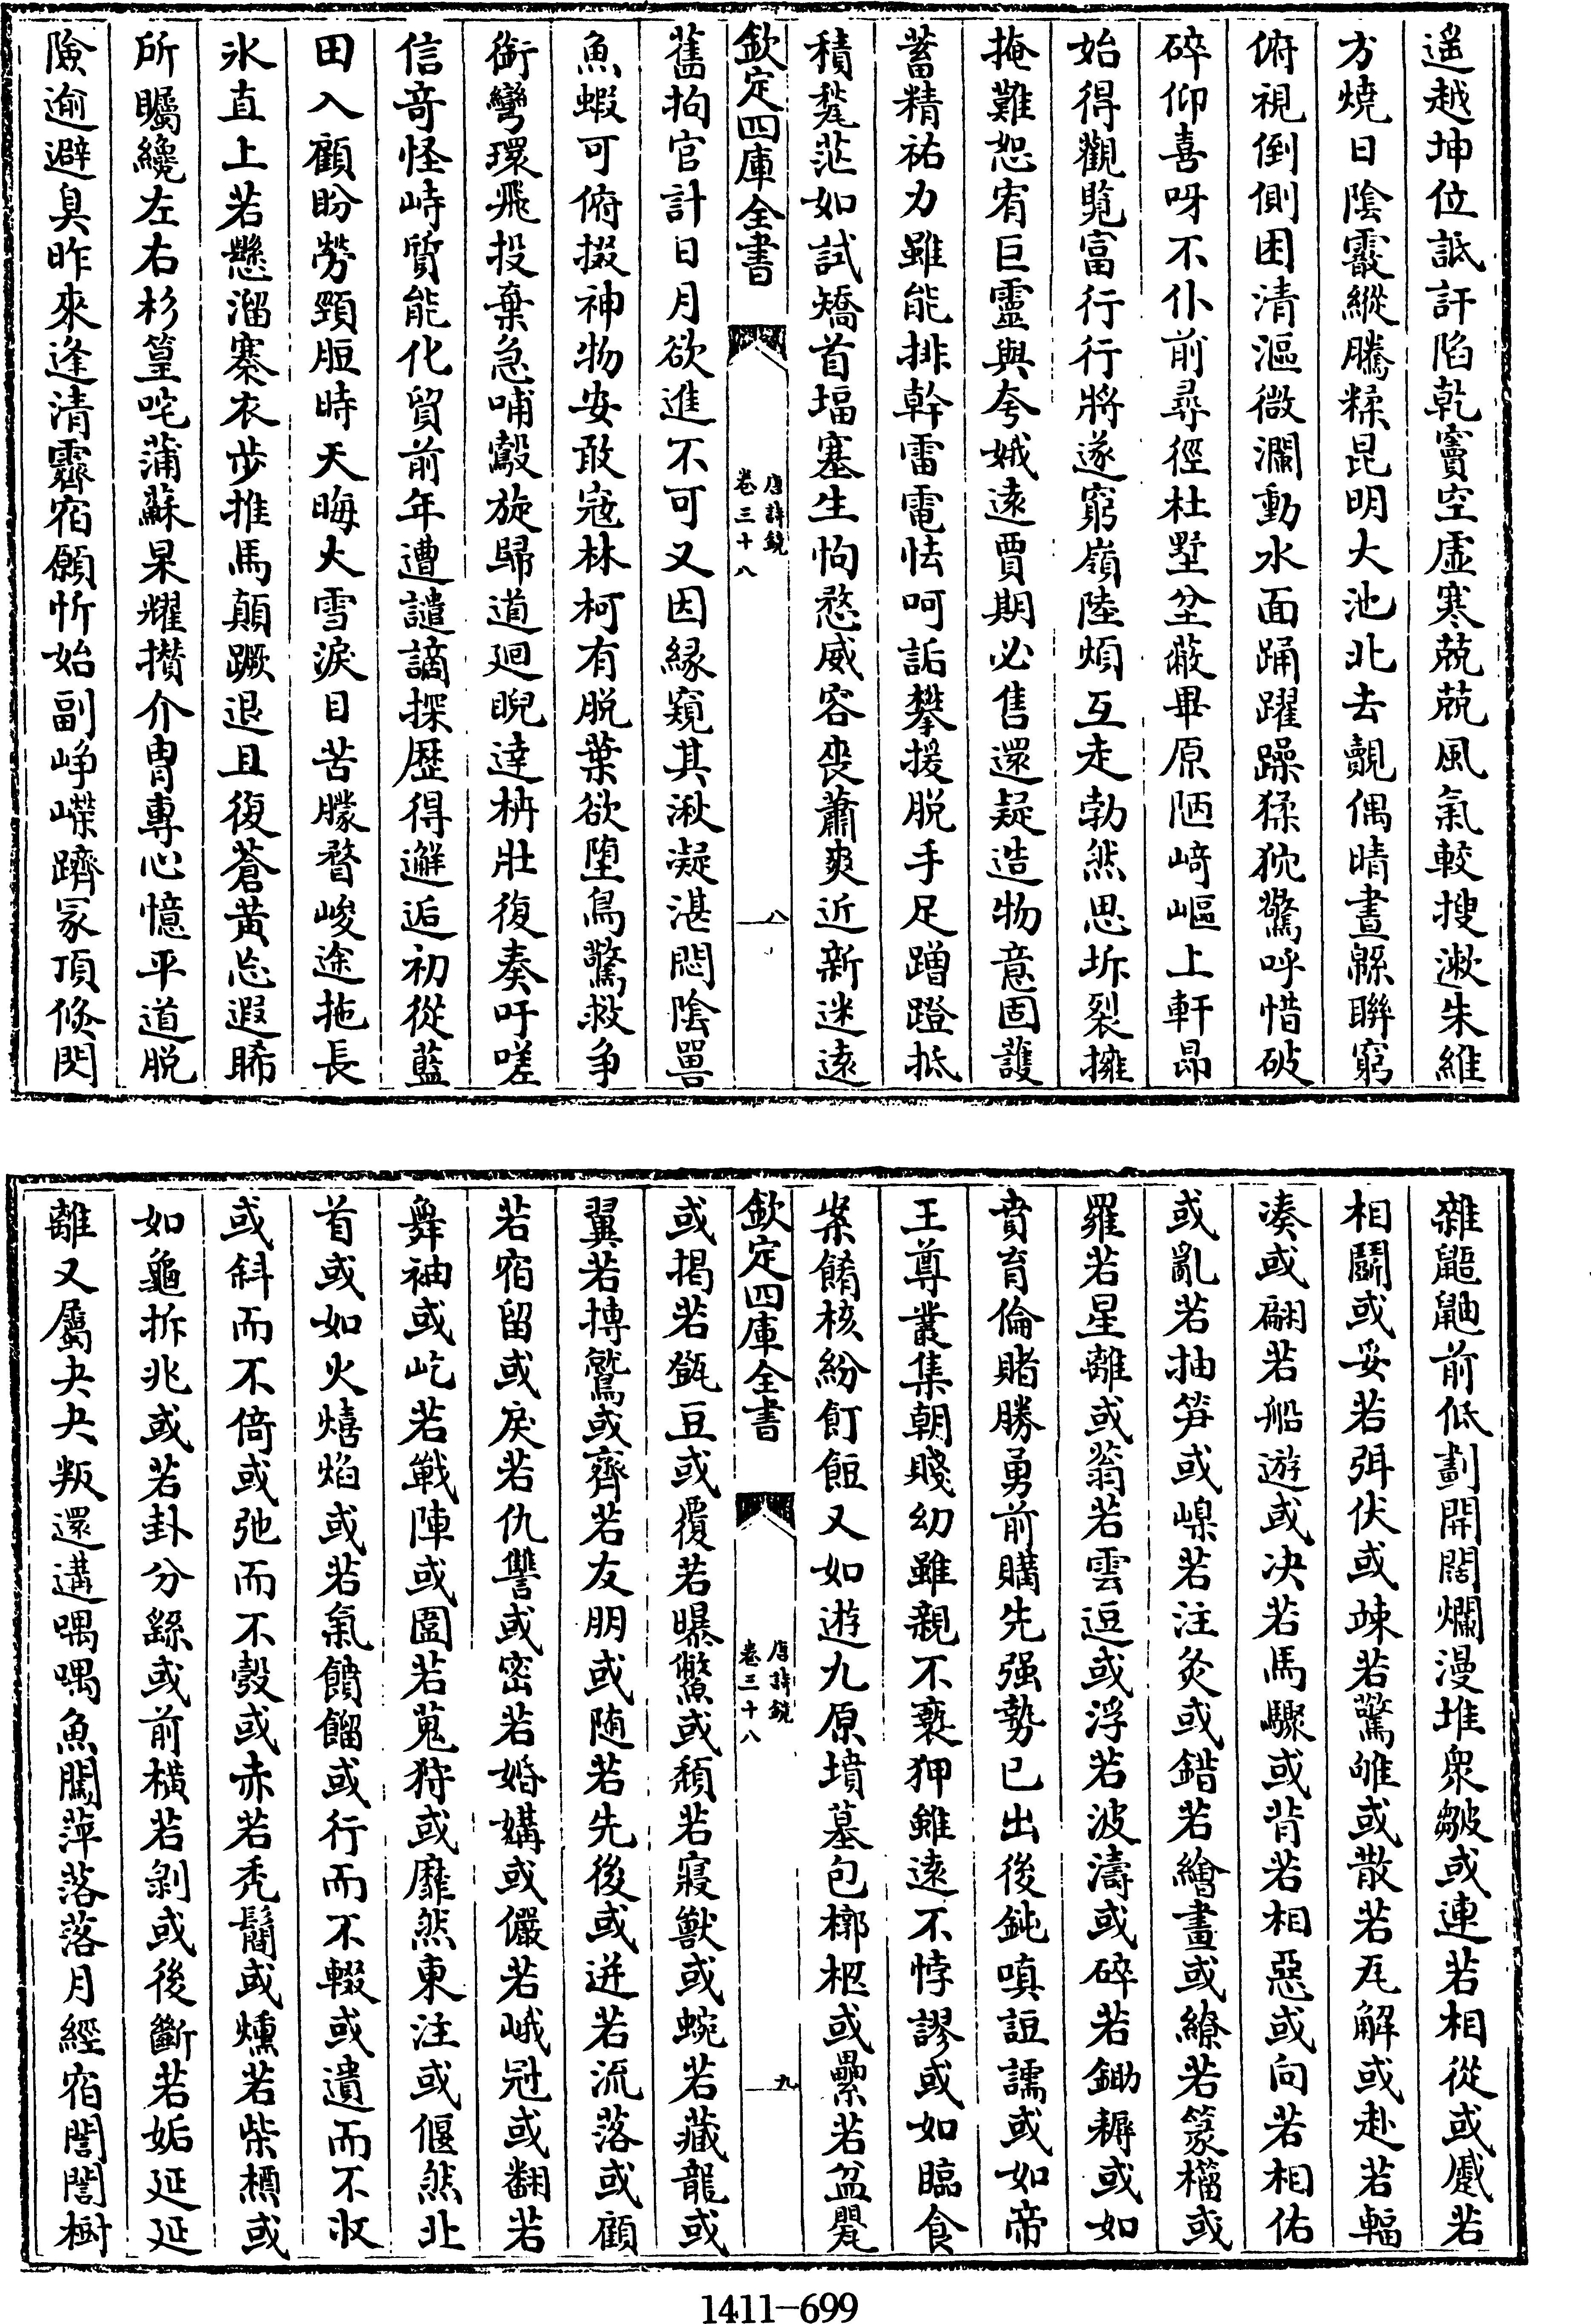 遥越坤位詆訐陷乾竇空虛寒兢兢風氣較搜漱朱維
方燒日陰霰縱騰糅昆明大池北去覿偶晴晝緜聯窮
俯視倒側困清漚微瀾動水面踊躍躁猱狖驚呼惜破
碎仰喜呀不仆前尋徑杜墅坌蔽畢原陋﨑嶇上軒昻
始得觀覧富行行將遂窮嶺陸煩互走勃然思坼裂擁
掩難恕宥巨靈與夸娥逺賈期必售還疑造物意固護
蓄精祐力雖能排斡雷電怯呵詬攀援脱手足蹭蹬抵
積甃茫如試矯首堛塞生怐愗威容喪蕭爽近新迷逺
欽定四庫全書
唐詩鏡
卷三十八
八
舊拘官計日月欲進不可又因縁窺其湫凝湛閟陰嘼
魚蝦可俯掇神物安敢宼林柯有脱葉欲墮鳥驚救争
銜彎環飛投棄急哺鷇旋歸道廻睨逹枿壯復奏吁嗟
信竒怪峙質能化貿前年遭譴謫探歴得邂逅初從藍
田入顧盼勞頸脰時天晦大雪淚目苦矇瞀峻途拖長
氷直上若懸溜褰衣步推馬顛蹶退且復蒼黄忘遐睎
所矚纔左右杉篁咤蒲蘇杲耀攅介胄專心憶平道脱
險逾避臭昨來逢清霽宿願忻始副峥嶸躋冡頂倐閃
雜鼯鼬前低劃開闊爛漫堆衆皺或連若相從或蹙若
相鬬或妥若弭伏或竦若驚雊或散若瓦解或赴若輻
凑或翩若船遊或决若馬驟或背若相惡或向若相佑
或亂若抽笋或嵲若注灸或錯若繪畫或繚若篆籀或
羅若星離或蓊若雲逗或浮若波濤或碎若鋤耨或如
賁育倫賭勝勇前購先强勢已出後鈍嗔䛠譳或如帝
王尊叢集朝賤幼雖親不䙝狎雖逺不悖謬或如臨食
案餚核紛飣餖又如遊九原墳墓包槨柩或纍若盆甖
欽定四庫全書
唐詩鏡
卷三十八
九
或揭若㽅豆或覆若曝鱉或頽若寢獸或蜿若藏龍或
翼若搏鷲或齊若友朋或随若先後或迸若流落或顧
若宿留或戾若仇讐或密若婚媾或儼若峨冠或翻若
舞袖或屹若戰陣或圍若蒐狩或靡然東注或偃然北
首或如火熺焰或若氣饙餾或行而不輟或遺而不收
或斜而不倚或弛而不彀或赤若秃鬜或燻若柴槱或
如龜拆兆或若卦分繇或前横若剝或後斷若姤延延
離又屬夬夬叛還遘喁喁魚闖萍落落月經宿誾誾樹
1411-699